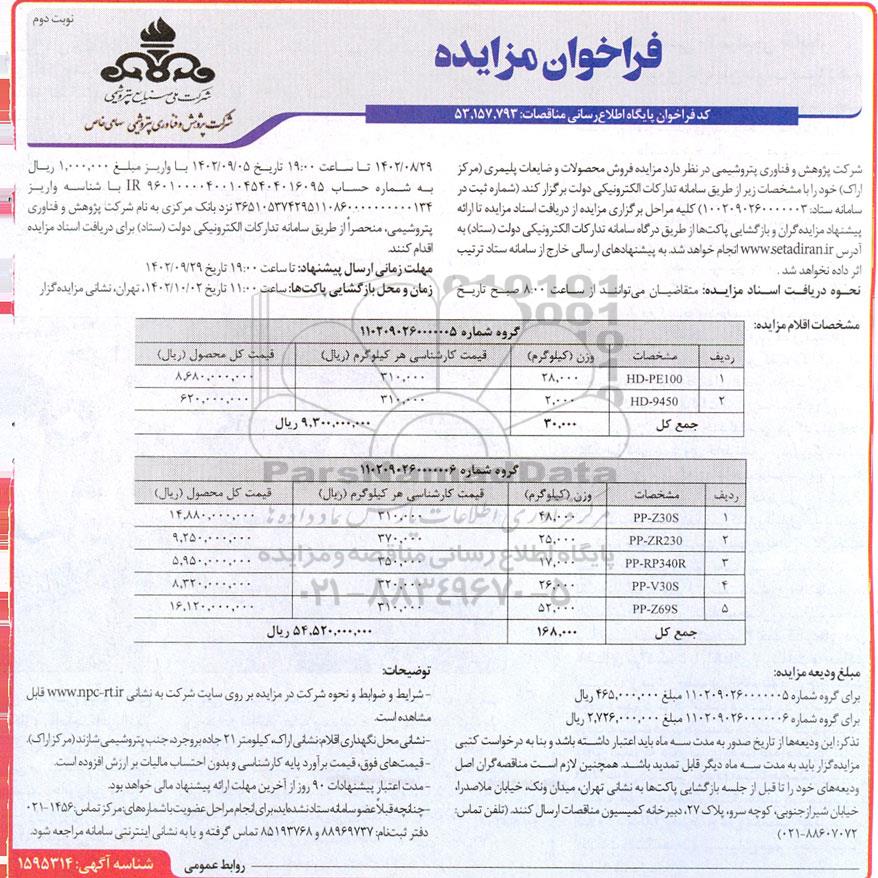 نوبت دوم
فراخوان مزایده
شرکت ملی صنایع پتروشیمی
شرکت پژوهش و فناوری پتروشیمی سهامی خاص
کد فراخوان پایگاه اطلاع رسانی مناقصات: ۵۳,۱۵۷,۷۹۳
شرکت پژوهش و فناوری پتروشیمی در نظر دارد مزایده فروش محصولات و ضایعات پلیمری (مرکز
اراک) خود را با مشخصات زیر از طریق سامانه تدارکات الکترونیکی دولت برگزار کند. (شماره ثبت در
سامانه ستاد: ۱۰۰۲۰۹۰۲۶۰۰۰۰۰۳) کلیه مراحل برگزاری مزایده از دریافت اسناد مزایده تا ارائه
پیشنهاد مزایده‌گران و بازگشایی پاکت‌ها از طریق درگاه سامانه تدارکات الکترونیکی دولت (ستاد) به
آدرس www.setadiran.ir انجام خواهد شد. به پیشنهادهای ارسالی خارج از سامانه ستاد ترتیب
اثر داده نخواهد شد.
نحوه دریافت اسناد مزایده: متقاضیان می‌توانند از ساعت ۸:۰۰ صبح تاریخ
۱۴۰۲/۰۸/۲۹ تا ساعت ۱۹:۰۰ تاریخ ۱۴۰۲/۰۹/۰۵ با واریز مبلغ ۱,۰۰۰,۰۰۰ ریال
به شماره حساب IR ۹۶۰۱۰۰۰۰۴۰۰۱۰۴۵۴۰۴۰۱۶۰۹۵ با شناسه واریز
۳۶۵۱۰۵۳۷۴۲۹۵۱۱۰۸۶۰۰۰۰۰۰۰۰۰۰۱۳۴ نزد بانک مرکزی به نام شرکت پژوهش و فناوری
پتروشیمی، منحصراً از طریق سامانه تدارکات الکترونیکی دولت (ستاد) برای دریافت اسناد مزایده
اقدام کنند.
مهلت زمانی ارسال پیشنهاد: تا ساعت ۱۹:۰۰ تاریخ ۱۴۰۲/۰۹/۲۹
زمان و محل بازگشایی پاکت‌ها: ساعت ۱۱:۰۰ تاریخ ۱۴۰۲/۱۰/۰۲، تهران، نشانی مزایده‌گزار
مشخصات اقلام مزایده:
گروه شماره ۱۱۰۲۰۹۰۲۶۰۰۰۰۰۰۵
ردیف مشخصات وزن (کیلوگرم) قیمت کارشناسی هر کیلوگرم (ریال) قیمت کل محصول (ریال)
۱ HD-PE100 ۲۸,۰۰۰ ۳۱۰,۰۰۰ ۸,۶۸۰,۰۰۰,۰۰۰
۲ HD-9450 ۲,۰۰۰ ۳۱۰,۰۰۰ ۶۲۰,۰۰۰,۰۰۰
جمع کل ۳۰,۰۰۰ ۹,۳۰۰,۰۰۰,۰۰۰ ریال
گروه شماره ۱۱۰۲۰۹۰۲۶۰۰۰۰۰۰۶
ردیف مشخصات وزن (کیلوگرم) قیمت کارشناسی هر کیلوگرم (ریال) قیمت کل محصول (ریال)
۱ PP-Z30S ۴۸,۰۰۰ ۳۱۰,۰۰۰ ۱۴,۸۸۰,۰۰۰,۰۰۰
۲ PP-ZR230 ۲۵,۰۰۰ ۳۷۰,۰۰۰ ۹,۲۵۰,۰۰۰,۰۰۰
۳ PP-RP340R ۱۷,۰۰۰ ۳۵۰,۰۰۰ ۵,۹۵۰,۰۰۰,۰۰۰
۴ PP-V30S ۲۶,۰۰۰ ۳۲۰,۰۰۰ ۸,۳۲۰,۰۰۰,۰۰۰
۵ PP-Z69S ۵۲,۰۰۰ ۳۱۰,۰۰۰ ۱۶,۱۲۰,۰۰۰,۰۰۰
جمع کل ۱۶۸,۰۰۰ ۵۴,۵۲۰,۰۰۰,۰۰۰ ریال
ParsNamadData
مرکز فرآوری اطلاعات پارس نماد داده‌ها
پایگاه اطلاع رسانی مناقصه و مزایده
۰۲۱-۸۸۳۴۹۶۷۰-۵
مبلغ ودیعه مزایده:
برای گروه شماره ۱۱۰۲۰۹۰۲۶۰۰۰۰۰۰۵ مبلغ ۴۶۵,۰۰۰,۰۰۰ ریال
برای گروه شماره ۱۱۰۲۰۹۰۲۶۰۰۰۰۰۰۶ مبلغ ۲,۷۲۶,۰۰۰,۰۰۰ ریال
تذکر: این ودیعه‌ها از تاریخ صدور به مدت سه ماه باید اعتبار داشته باشد و بنا به درخواست کتبی
مزایده‌گزار باید به مدت سه ماه دیگر قابل تمدید باشد. همچنین لازم است مناقصه‌گران اصل
ودیعه‌های خود را تا قبل از جلسه بازگشایی پاکت‌ها به نشانی تهران، میدان ونک، خیابان ملاصدرا،
خیابان شیراز جنوبی، کوچه سرو، پلاک ۲۷، دبیرخانه کمیسیون مناقصات ارسال کنند. (تلفن تماس:
۰۲۱-۸۸۶۰۷۰۷۲)
توضیحات:
- شرایط و ضوابط و نحوه شرکت در مزایده بر روی سایت شرکت به نشانی www.npc-rt.ir قابل
مشاهده است.
- نشانی محل نگهداری اقلام: نشانی اراک، کیلومتر ۲۱ جاده بروجرد، جنب پتروشیمی شازند (مرکز اراک).
- قیمت‌های فوق، قیمت برآورد پایه کارشناسی و بدون احتساب مالیات بر ارزش افزوده است.
- مدت اعتبار پیشنهادات ۹۰ روز از آخرین مهلت ارائه پیشنهاد مالی خواهد بود.
- چنانچه قبلاً عضو سامانه ستاد نشده‌اید، برای انجام مراحل عضویت با شماره‌های: مرکز تماس: ۱۴۵۶-۰۲۱
دفتر ثبت‌نام: ۸۸۹۶۹۷۳۷ و ۸۵۱۹۳۷۶۸ تماس گرفته و یا به نشانی اینترنتی سامانه مراجعه شود.
روابط عمومی
شناسه آگهی: ۱۵۹۵۳۱۴